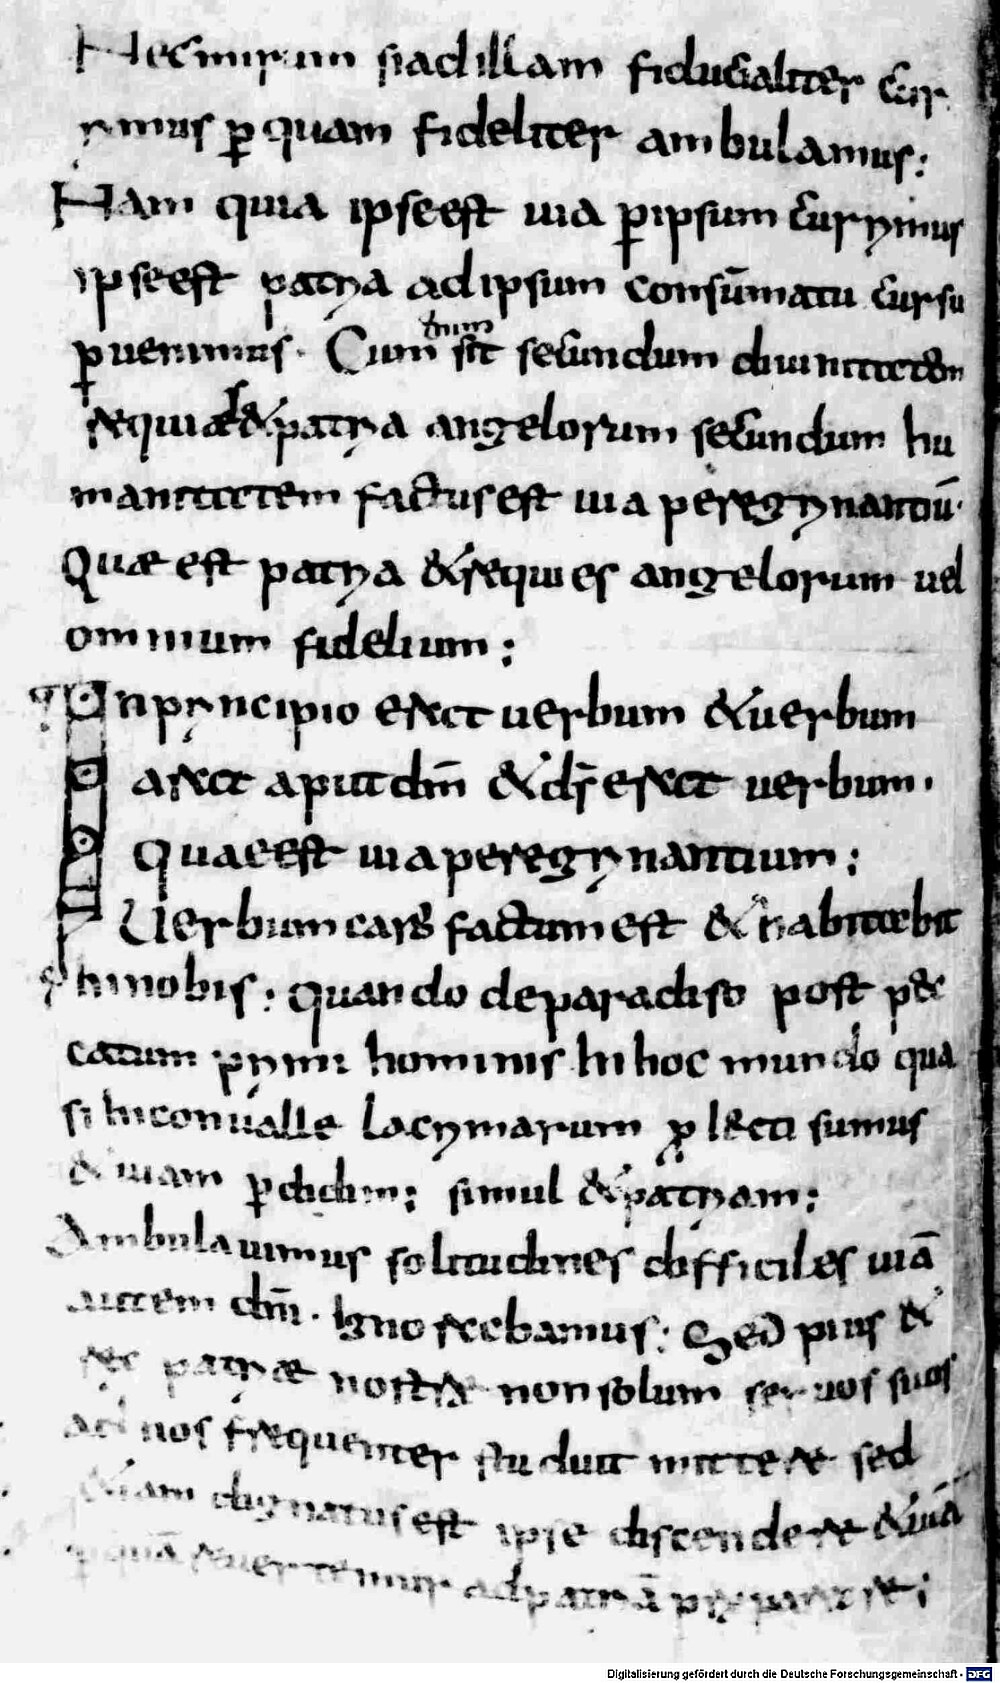 Nec mirum si ad illam fiducialiter cur
rimus p̱ quam fideliter ambulamus:
Nam quia ipse est uia p̱ ipsum currimus
ipse est patria ad ipsum consūmatu cursu
p̱uenimus. Cum enim sit secundum diuinitatem
requiæs & patria angelorum secundum hu
manitatem factus est uia peregrinantiū.
Quæ est patria & requies angelorum uel
omnium fidelium:
In principio erat uerbum & uerbum
erat aput dm̄ & ds̄ erat uerbum.
Quae est uia peregrinantium:
Uerbum caro factum est & habitabit
in nobis: quando de paradiso post pec
catum primi hominis in hoc mundo qua
si in conualle lacrimarum ꝓlecti sumus
& uiam p̱didim; simul & patriam:
Ambulauimus solitudines difficiles uiā
autem dn̄i. Ignorabamus: Sed pius &
rec patriæ nostræ non solum seruos suos
ad nos frequenter studuit mittere sed
&iam dignatus est ipse discendere & uiā
p̱ quā reuertemur ad patriā preparare: